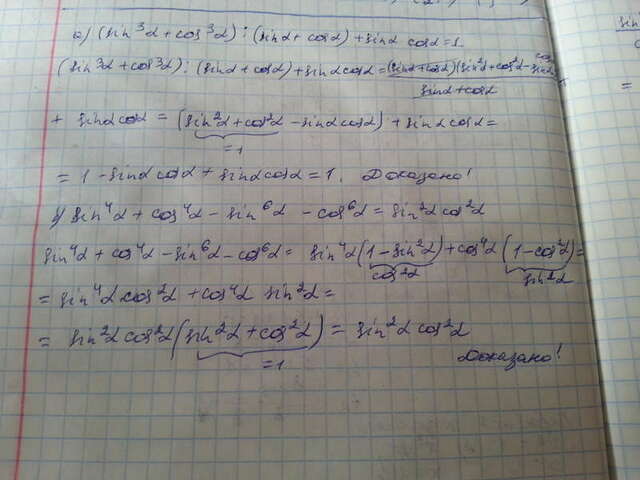 а) (sin³α + cos³α) : (sinα + cosα) + sinα cosα = 1.
(sin³α + cos³α) : (sinα + cosα) + sinα cosα = (sinα + cosα)(sin²α + cos²α - sinα cosα)
sinα + cosα
+ sinα cosα = (sin²α + cos²α - sinα cosα) + sinα cosα =
= 1
= 1 - sinα cosα + sinα cosα = 1. Доказано!
sin⁴α + cos⁴α - sin⁶α - cos⁶α = sin²α cos²α
sin⁴α + cos⁴α - sin⁶α - cos⁶α = sin⁴α (1 - sin²α) + cos⁴α (1 - cos²α) =
cos²α sin²α
= sin⁴α cos²α + cos⁴α sin²α =
= sin²α cos²α (sin²α + cos²α) = sin²α cos²α
= 1 Доказано!